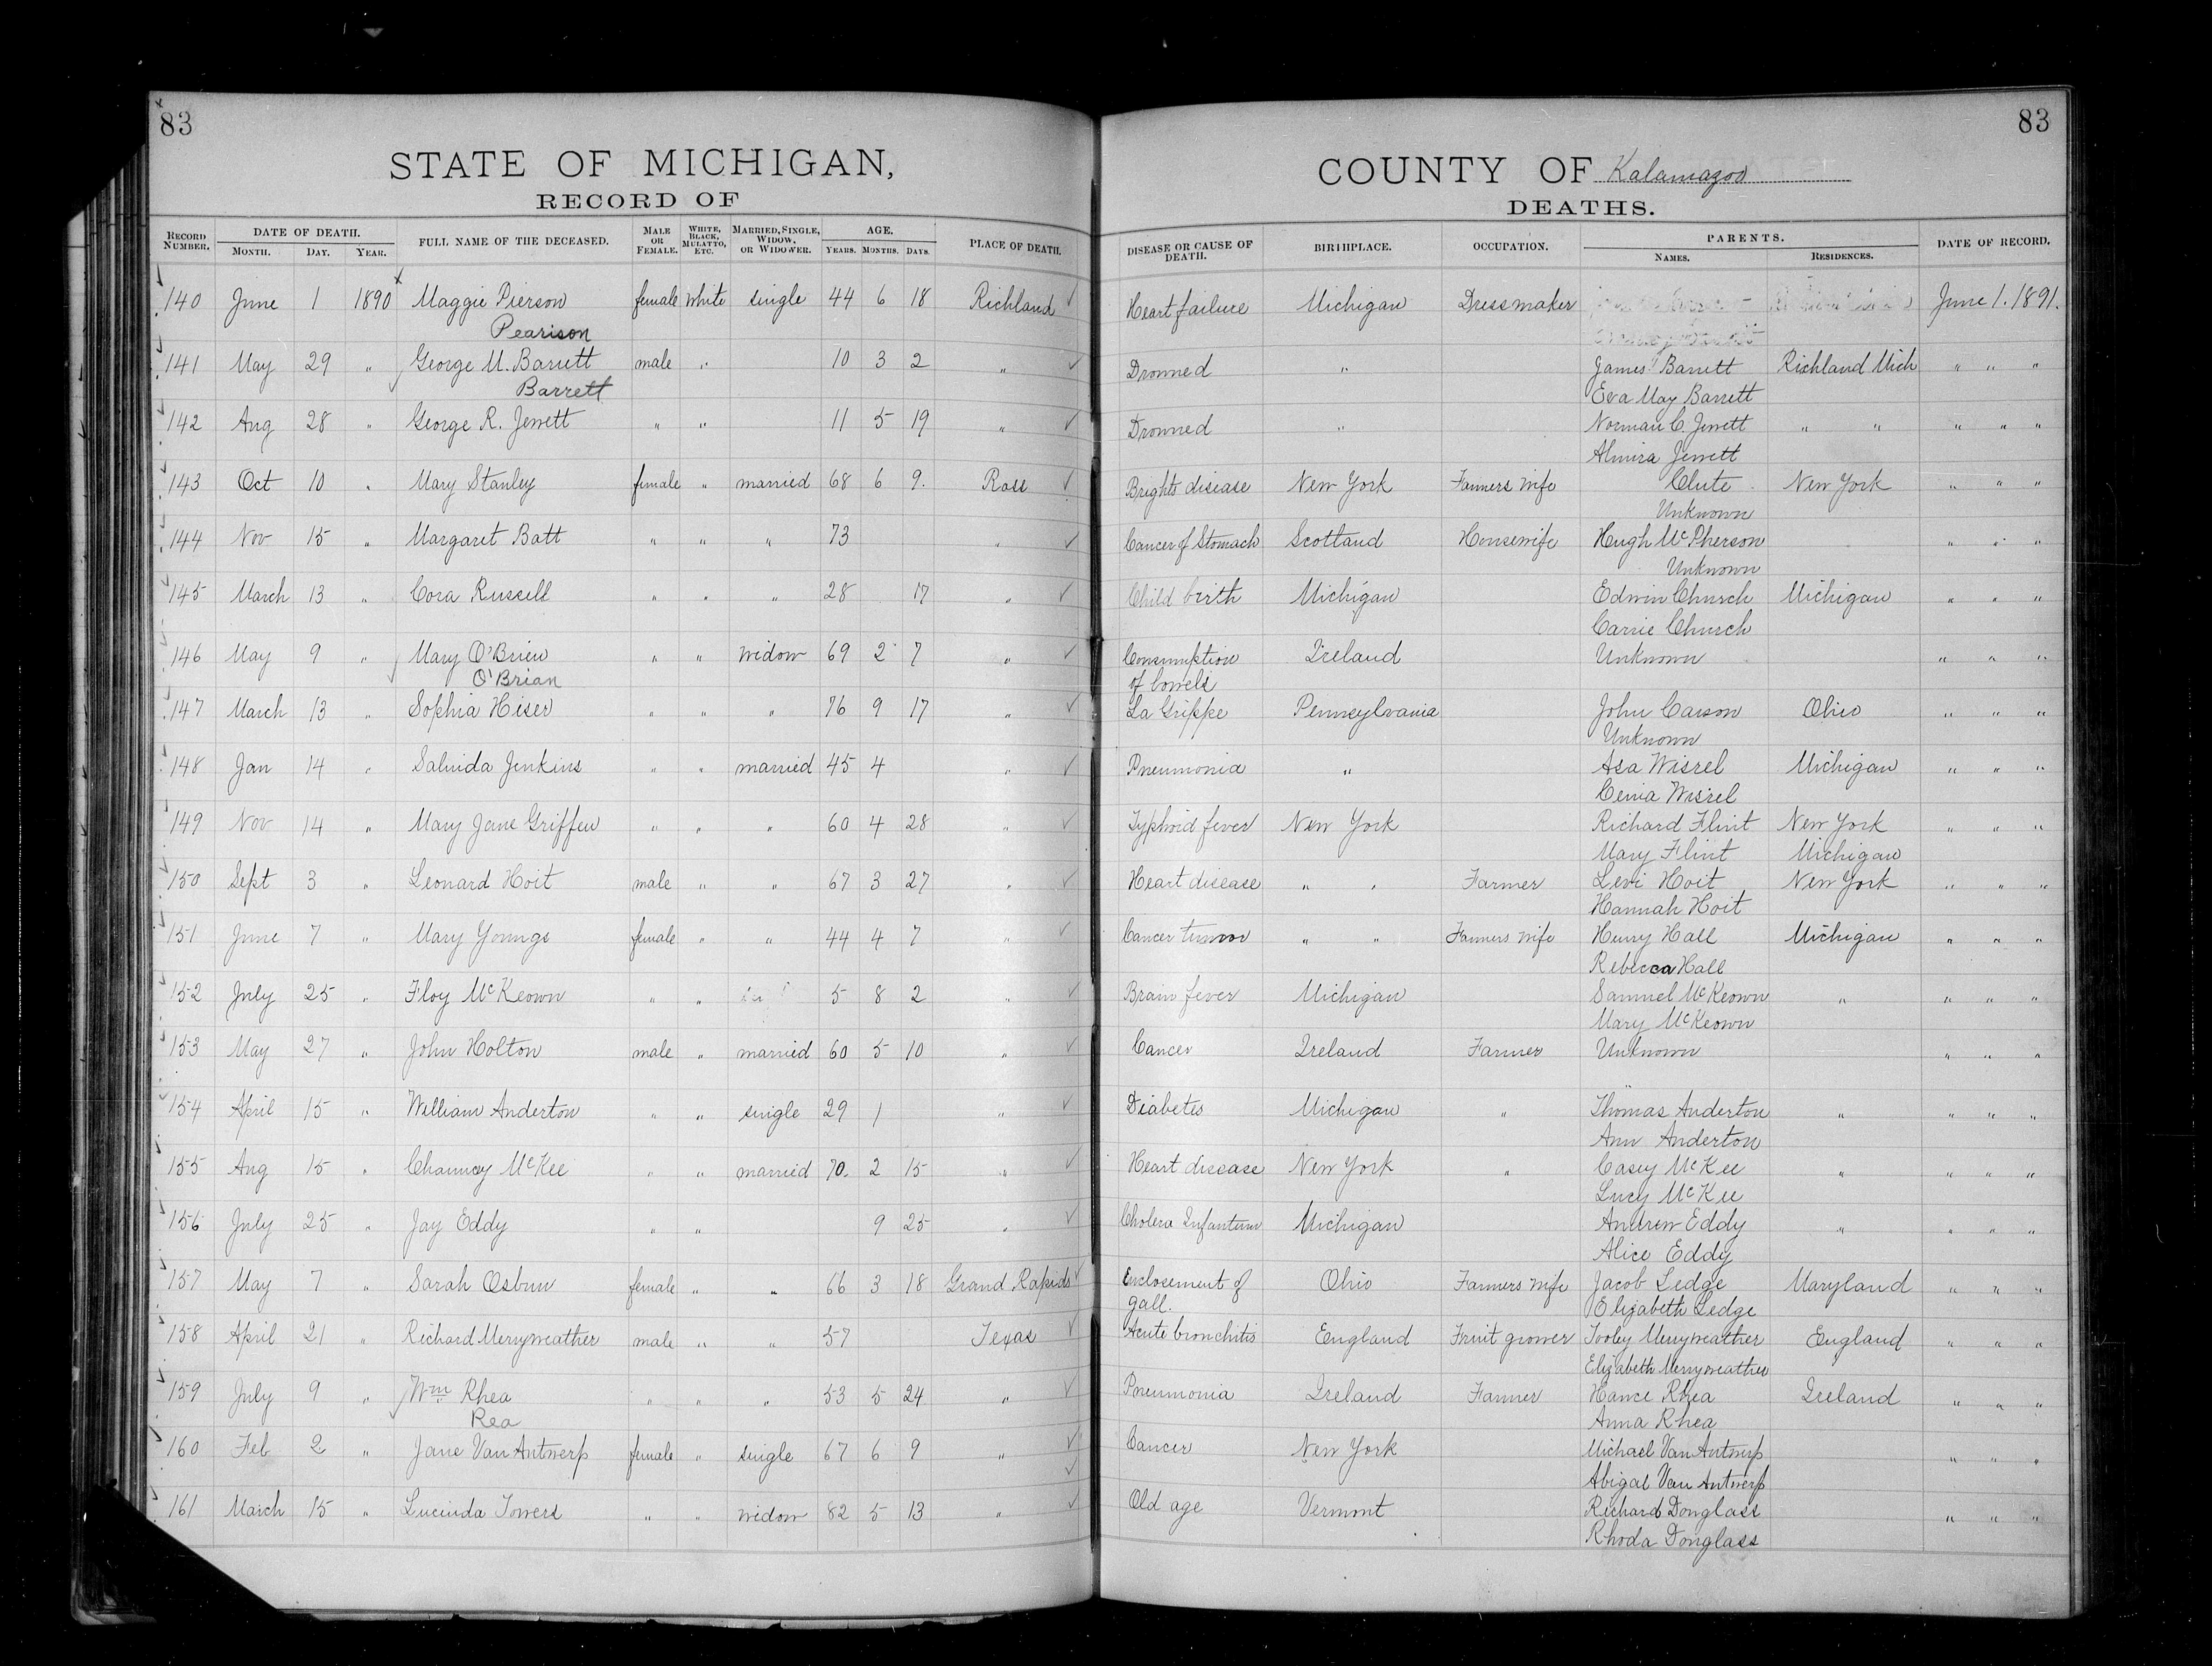 83
STATE OF MICHIGAN,
RECORD OF
RECORD NUMBER. DATE OF DEATH. MONTH. DAY. YEAR. FULL NAME OF THE DECEASED. MALE OR FEMALE. WHITE, BLACK, MULATTO, ETC. MARRIED, SINGLE, WIDOW, OR WIDOWER. AGE. YEARS. MONTHS. DAYS. PLACE OF DEATH.
140 June 1 1890 Maggie Pierson female White single 44 6 18 Richland
Pearison
141 May 29 " George M. Barrett male " 10 3 2 "
Barrett
142 Aug 28 " George R. Jewett " " 11 5 19 "
143 Oct 10 " Mary Stanley female " married 68 6 9. Ross
144 Nov 15 " Margaret Batt " " " 73 "
145 March 13 " Cora Russell " " " 28 17 "
146 May 9 " Mary O'Brien " " widow 69 2 7 "
O'Brian
147 March 13 " Sophia Hiser " " " 76 9 17 "
148 Jan 14 " Salinda Jenkins " " married 45 4 "
149 Nov 14 " Mary Jane Griffen " " " 60 4 28 "
150 Sept 3 " Leonard Hoit male " " 67 3 27 "
151 June 7 " Mary Youngs female " " 44 4 7 "
152 July 25 " Floy McKeown " " 5 8 2 "
153 May 27 " John Holton male " married 60 5 10 "
154 April 15 " William Anderton " " single 29 1 "
155 Aug 15 " Chauncey McKee " " married 70. 2 15 "
156 July 25 " Jay Eddy " " 9 25 "
157 May 7 " Sarah Osbun female " " 66 3 18 Grand Rapids
158 April 21 " Richard Merryweather male " " 57 Texas
159 July 9 " Wm Rhea " " " 53 5 24 "
Rea
160 Feb 2 " Jane Van Antwerp female " single 67 6 9 "
161 March 15 " Lucinda Towers " " widow 82 5 13 "
83
COUNTY OF Kalamazoo
DEATHS.
DISEASE OR CAUSE OF DEATH. BIRTHPLACE. OCCUPATION. PARENTS. NAMES. RESIDENCES. DATE OF RECORD.
Heart failure Michigan Dressmaker June 1. 1891.
Drowned " James Barrett Richland Mich " " "
Eva May Barrett
Drowned " Norman C. Jewett " " " " "
Almira Jewett
Brights disease New York Farmers wife Clute New York " " "
Unknown
Cancer of Stomach Scotland Housewife Hugh McPherson " " "
Unknown
Child birth Michigan Edwin Church Michigan " " "
Carrie Church
Consumption Ireland Unknown " " "
of bowels
La Grippe Pennsylvania John Carson Ohio " " "
Unknown
Pneumonia " Asa Wisrel Michigan " " "
Cenia Wisrel
Typhoid fever New York Richard Flint New York " " "
Mary Flint Michigan
Heart disease " " Farmer Levi Hoit New York " " "
Hannah Hoit
Cancer tumor " " Farmers wife Henry Hall Michigan " " "
Rebecca Hall
Brain fever Michigan Samuel McKeown " " " "
Mary McKeown
Cancer Ireland Farmer Unknown " " "
Diabetes Michigan " Thomas Anderton " " " "
Ann Anderton
Heart disease New York " Casey McKee " " " "
Lucy McKee
Cholera Infantum Michigan Andrew Eddy " " " "
Alice Eddy
Enclosement of Ohio Farmers wife Jacob Ledge Maryland " " "
gall. Elizabeth Ledge
Acute bronchitis England Fruit grower Tooley Merryweather England " " "
Elizabeth Merryweather
Pneumonia Ireland Farmer Hance Rhea Ireland " " "
Anna Rhea
Cancer New York Michael Van Antwerp " " "
Abigal Van Antwerp
Old age Vermont Richard Donglass " " "
Rhoda Donglass